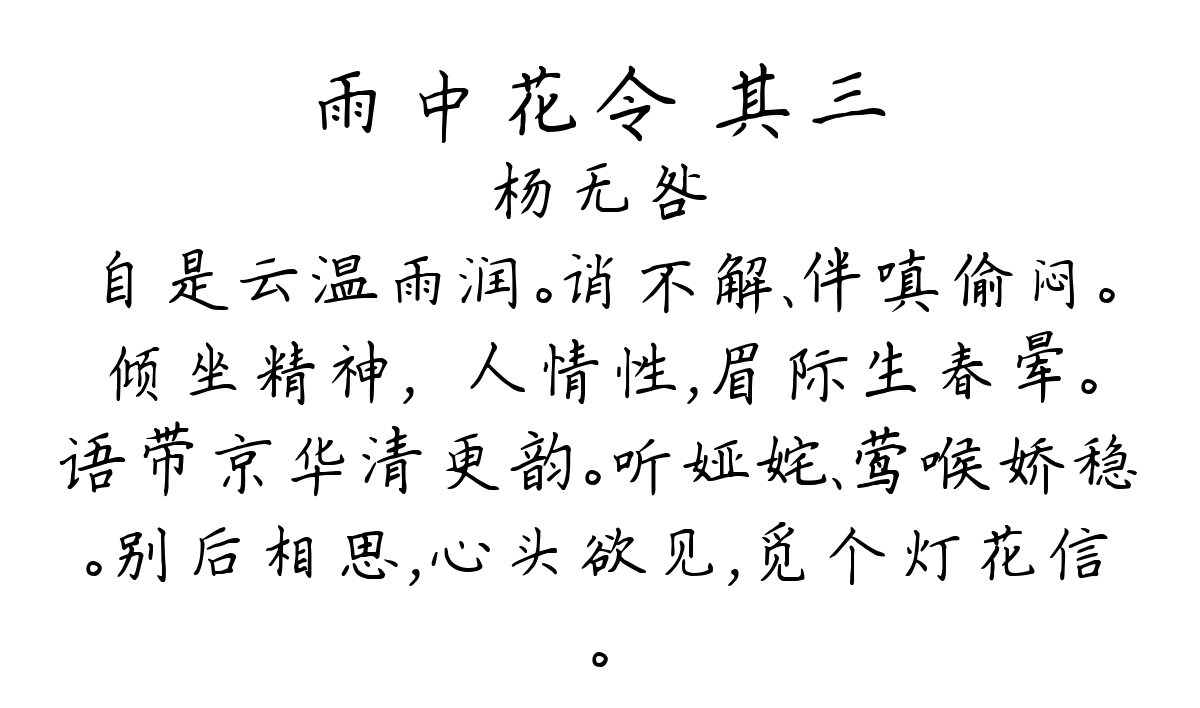 雨中花令 其三
杨无咎
自是云温雨润。诮不解、伴嗔偷闷。
倾坐精神，人情性，眉际生春晕。
语带京华清更韵。听娅姹、莺喉娇稳
。别后相思，心头欲见，觅个灯花信
。